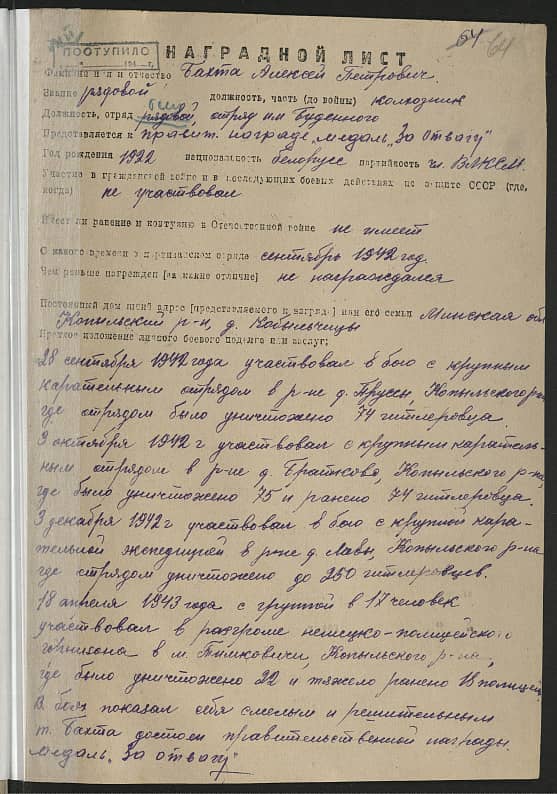 64 64
ПОСТУПИЛО
194 г.
НАГРАДНОЙ ЛИСТ
Фамилия имя и отчество Бахта Алексей Петрович.
Звание рядовой должность, часть (до войны) колхозник
боец
Должность, отряд рядовой, отряд им Буденного
Представляется к правит. награде „медаль „За отвагу"
Год рождения 1922 национальность белорусс партийность чл. ВЛКСМ.
Участие в гражданской войне и в последующих боевых действиях по защите СССР (где,
когда) не участвовал
Имеет ли ранение и контузию в Отечественной войне не имеет
С какого времени в партизанском отряде сентябрь 1942 год.
Чем раньше награжден [за какие отличие] не награждался
Постоянный домашний адрес [представляемого к награде] или его семьи Минская обл
Копыльский р-н, д. Кобыличицы
Краткое изложение личного боевого подвига или заслуг;
28 сентября 1942 года участвовал в бою с крупным
карательным отрядом в р-не д. Пруссы, Копыльского р-на
где отрядом было уничтожено 74 гитлеровца.
3 октября 1942 г участвовал с крупным каратель-
ным отрядом в р-не д. Братково, Копыльского р-на,
где было уничтожено 75 и ранено 74 гитлеровца.
3 декабря 1942 г участвовал в бою с крупной кара-
тельной экспедицией в р-не д. Лавы, Копыльского р-на
где отрядом уничтожено до 250 гитлеровцев.
18 апреля 1943 года с группой в 17 человек
участвовал в разгроме немецко-полицейского
гарнизона в м. Тимковичи, Копыльского р-на,
где было уничтожено 22 и тяжело ранено 18 полицей
В боях показал себя смелым и решительным
т. Бахта достоен правительственной награды.
медаль „За отвагу"